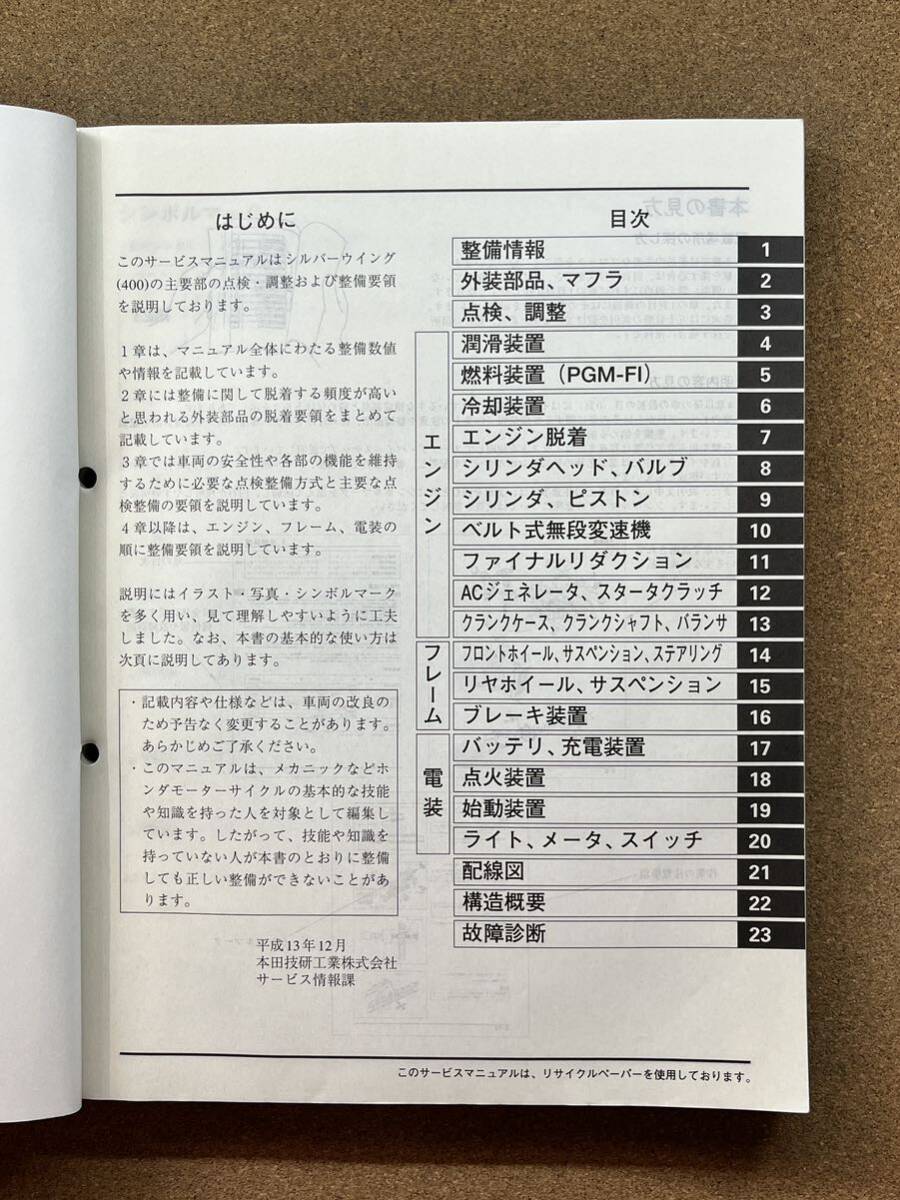 はじめに
このサービスマニュアルはシルバーウイング
(400)の主要部の点検・調整および整備要領
を説明しております。
1章は、マニュアル全体にわたる整備数値
や情報を記載しています。
2章には整備に関して脱着する頻度が高い
と思われる外装部品の脱着要領をまとめて
記載しています。
3章では車両の安全性や各部の機能を維持
するために必要な点検整備方式と主要な点
検整備の要領を説明しています。
4章以降は、エンジン、フレーム、電装の
順に整備要領を説明しています。
説明にはイラスト・写真・シンボルマーク
を多く用い、見て理解しやすいように工夫
しました。なお、本書の基本的な使い方は
次頁に説明してあります。
・記載内容や仕様などは、車両の改良の
ため予告なく変更することがあります。
あらかじめご了承ください。
・このマニュアルは、メカニックなどホ
ンダモーターサイクルの基本的な技能
や知識を持った人を対象として編集し
ています。したがって、技能や知識を
持っていない人が本書のとおりに整備
しても正しい整備ができないことがあ
ります。
平成13年12月
本田技研工業株式会社
サービス情報課
目次
整備情報 1
外装部品、マフラ 2
点検、調整 3
エンジン
潤滑装置 4
燃料装置（PGM-FI） 5
冷却装置 6
エンジン脱着 7
シリンダヘッド、バルブ 8
シリンダ、ピストン 9
ベルト式無段変速機 10
ファイナルリダクション 11
ACジェネレータ、スタータクラッチ 12
クランクケース、クランクシャフト、バランサ 13
フレーム
フロントホイール、サスペンション、ステアリング 14
リヤホイール、サスペンション 15
ブレーキ装置 16
電装
バッテリ、充電装置 17
点火装置 18
始動装置 19
ライト、メータ、スイッチ 20
配線図 21
構造概要 22
故障診断 23
このサービスマニュアルは、リサイクルペーパーを使用しております。